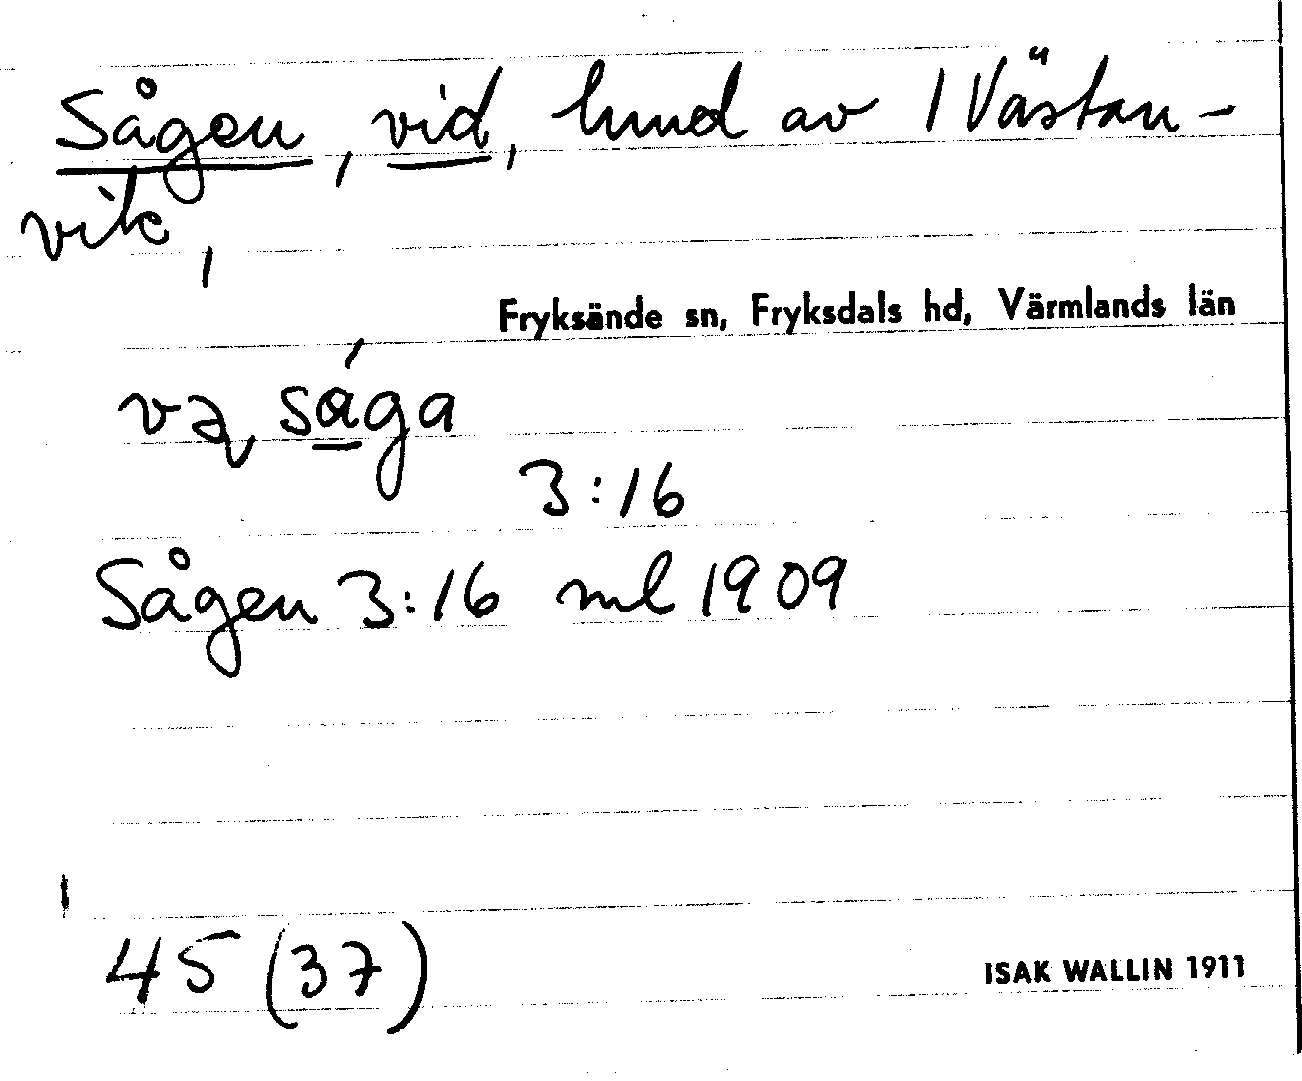 Sågen, vid, hmd av 1 Västan-
vik,
Fryksände sn, Fryksdals hd, Värmlands län
såga
3:16
Sågen 3:16 ml 1909
45 (37)
ISAK WALLIN 1911